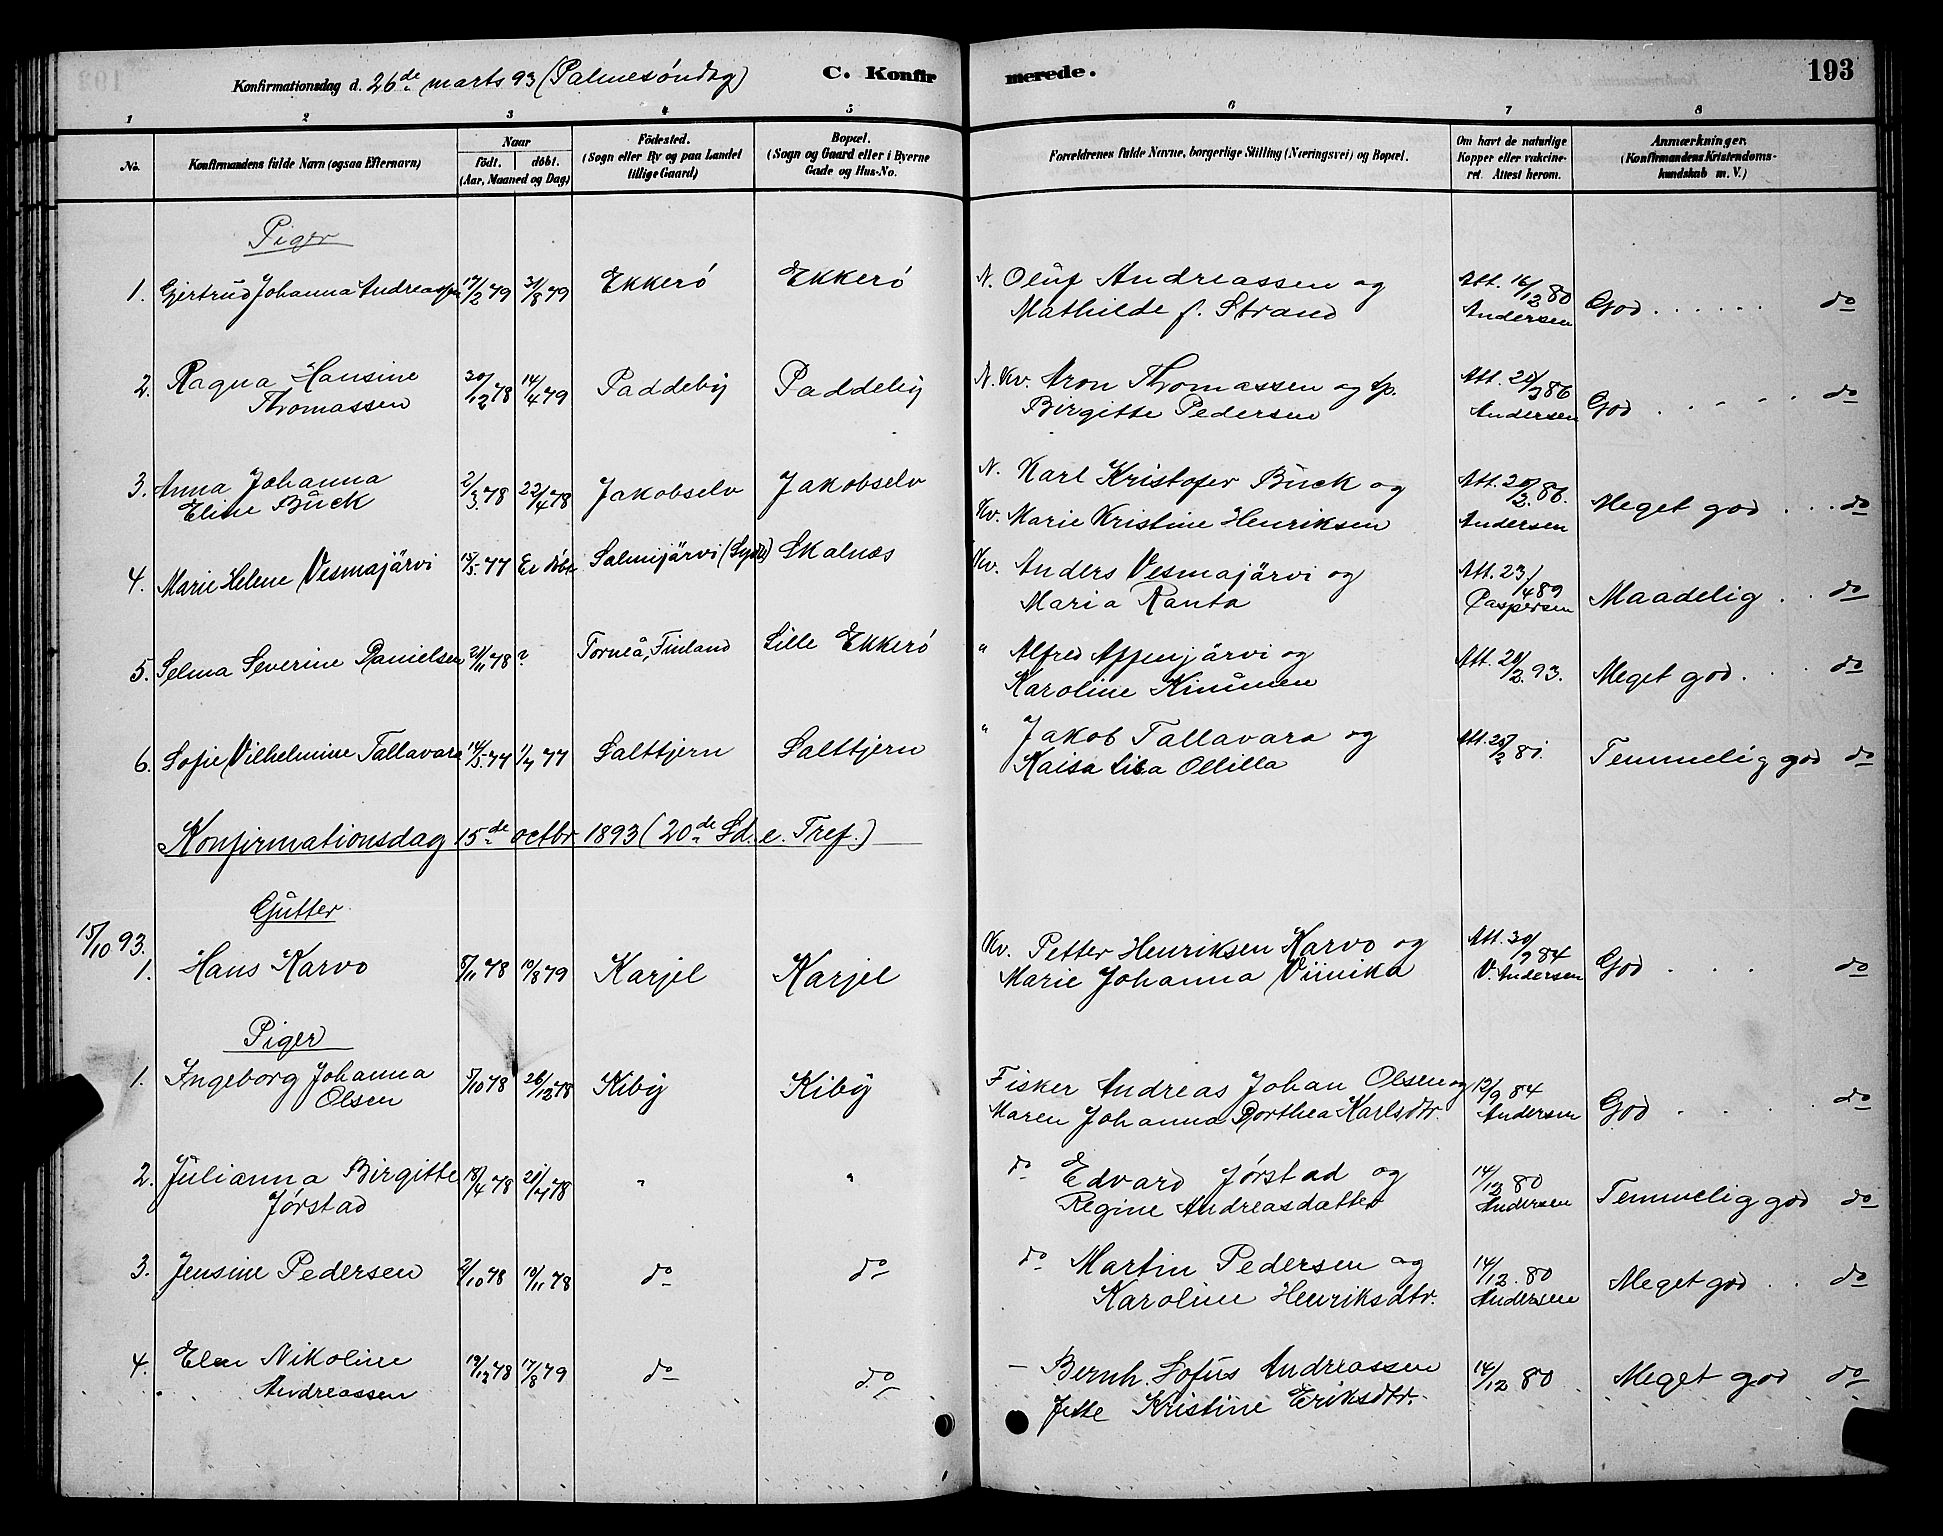 Konfirmationsdag d. 26de marts 93 (Palmesöndag) C. Konfirmerede. 193
1 2 3 4 5 6 7 8
No. Konfirmandens fulde Navn (ogsaa Efternavn) Naar födt. döbt. (Aar, Maaned og Dag) Födested. (Sogn eller By og paa Landet tillige Gaard) Bopæl. (Sogn og Gaard eller i Byerne Gade og Hus-No. Forældrenes fulde Navne, borgerlige Stilling (Næringsvei) og Bopæl. Om havt de naturlige Kopper eller vakcineret. Attest herom. Anmærkninger. (Konfirmandens Kristendomskundskab m. V.)
Piger
1. Gjertrud Johanna Andreassen 17/2 79 31/8 79 Ekkerö Ekkerö N. Oluf Andreassen og Att. 16/12 80 God do
Mathilde f. Strand Andersen
2. Ragna Hansine 30/12 78 14/4 79 Paddeby Paddeby N. Kv. Aron Thomassen og Att. 86 God do
Thomassen Birgitte Pedersen Andersen
3. Anna Johanna 2/3 78 22/4 78 Jakobselv Jakobselv N. Karl Kristofer Buck og Att. 86. Meget god do
Eline Buck Kv. Marie Kristine Henriksen Andersen
4. Marie Helene Vesmajärvi 15/5 77 Er döbt Salmijärvi Skalnæs Kv. Anders Vesmajärvi og Att. 23/4 89 Maadelig do
Maria Ranta Caspersen
5. Selma Severine Danielsen 78 ? Torneå, Finland Lille Ekkerö " Alfred Appenjärvi og Att. 93. Meget god do
Karoline Kinunen
6. Sofie Vilhelmine Tallavara 14/5 77 1/7 77 Saltbjern Saltbjern " Jakob Tallavara og Att. 81. Temmelig god do
Kaisa Lisa Ollilla
Konfirmationsdag 15de octbr 1893 (20de Sd. e. Tref.)
Gutter
15/10 93.
1. Hans Karvo 8/11 78 10/8 79 Karjel Karjel Kv. Petter Henriksen Karvo og Att. 30/9 84 God do
Marie Johanna Viinika V. Andersen
Piger
1. Ingeborg Johanna 5/10 78 26/12 78 Kiby Kiby Fisker Andreas Johan Olsen og 12/9 84 God do
Olsen Maren Johanna Dorthea Karlsdtr. Andersen
2. Julianna Birgitte 18/4 78 21/7 78 " " do Edvard Jørstad og 14/12 80 Temmelig god do
Jørstad Regine Andreasdatter Andersen
3. Jensine Pedersen 2/10 78 10/11 78 do do do Martin Pedersen og 14/12. 80 Meget god do
Karoline Henriksdtr. Andersen
4. Elen Nikoline 19/12 78 17/8 79 do do — Bernh. Sofus Andreassen 14/12 80 Meget god do
Andreassen Jette Kristine Eriksdtr.